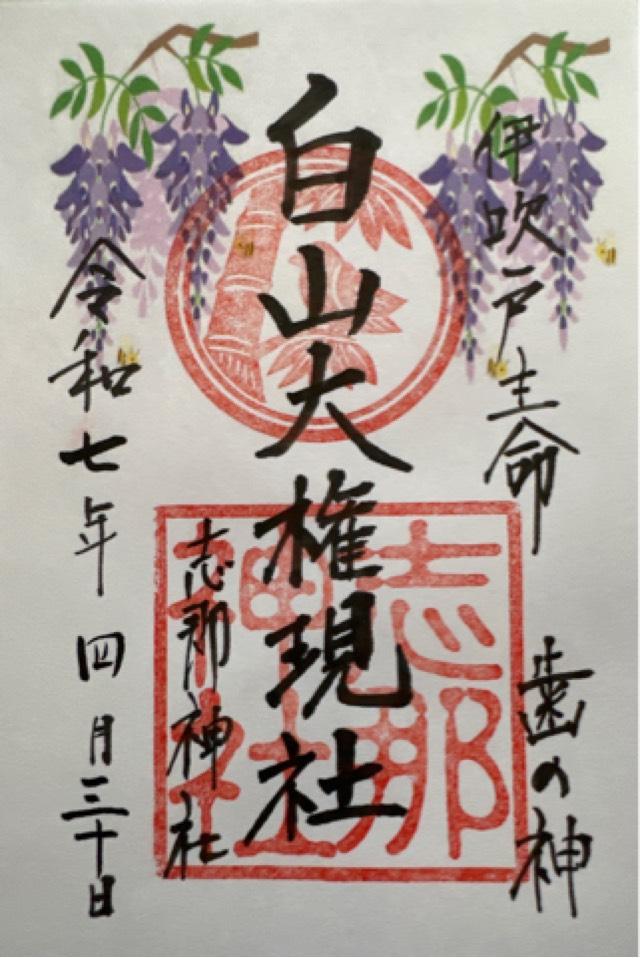 伊吹戸主命
歯の神
白山大権現社
志那神社
志那神社
令和七年四月三十日